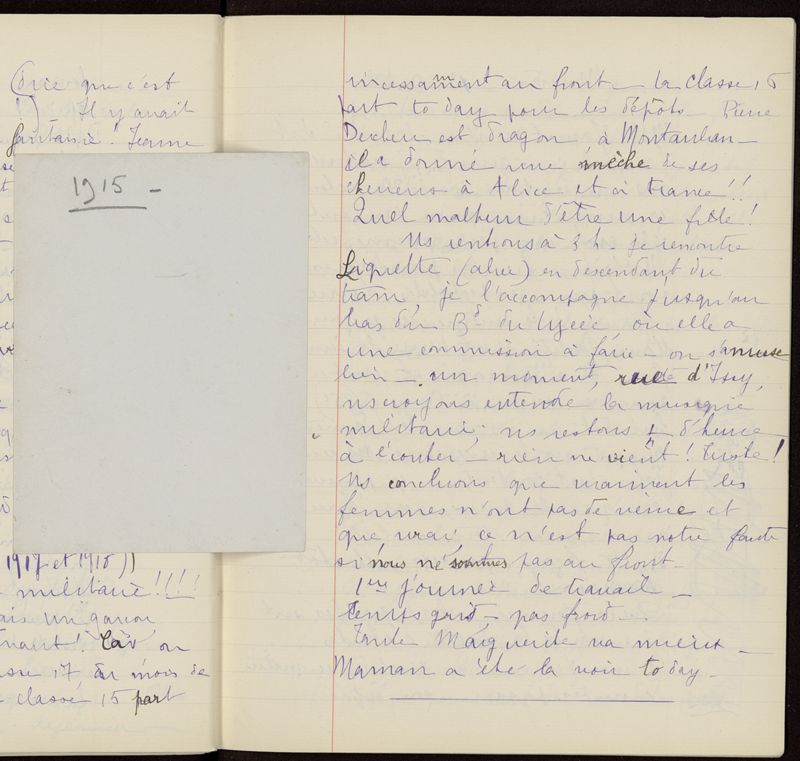 que c'est
!) - Il y avait
fantaisie". Jeanne
1915 -
1917 et 1918))
militaire!!!!
un garçon
Car on
17 au mois de
classe 15 part
incessamment au front - La classe 16
part to day pour les dépôts. Pierre
est dragon, à Montauban -
il a donné une mèche de ses
cheveux à Alice et à France!!
Quel malheur d'être une fille!
Ns rentrons à 2 h. je rencontre
Liquette (alice) en descendant du
tram, je l'accompagne jusqu'au
bas du Bd du Lycée, où elle a
une commission à faire - on s'amuse
bien - un moment, rue d'Issy,
ns croyons entendre la musique
militaire; ns restons d'heure
à l'écouter - rien ne vient! triste!
Ns concluons que vraiment les
femmes n'ont pas de veine et
que vrai ce n'est pas notre faute
si nous ne sommes pas au front -
1ère journée de travail -
temps gris - pas froid -
Tante Marguerite va mieux -
Maman a été la voir to day -